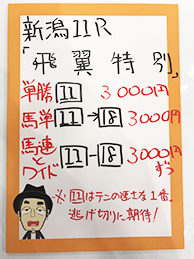 新潟11R
「飛翼特別」
単勝 11 3000円
馬単 11→18 3000円
馬連とワイド 11-18 3000円ずつ
※11はテンの速さは1番。
逃げ切りに期待!